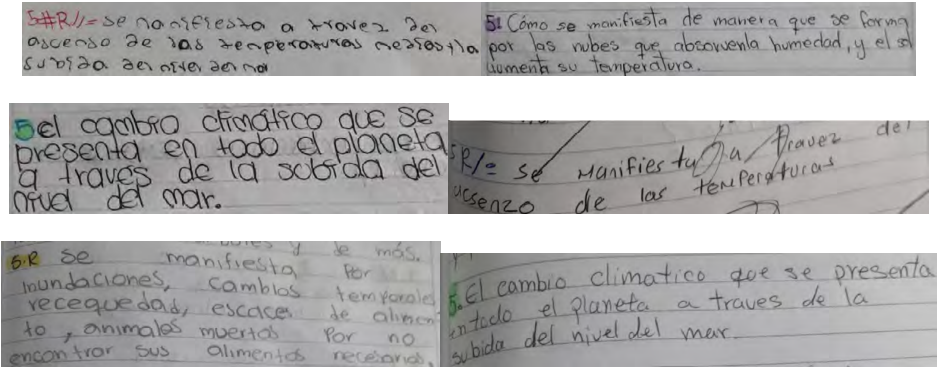 5#R//= se nanifiesta a travez del
ascenso de las temperaturas medias tla
subida del nivel del mar
5: Cómo se manifiesta de manera que se forma
por las nubes que absorvenla humedad, y el sol
aumenta su temperatura.
5 el cambio climático que se
presenta en todo el planeta
a traves de la sobida del
nivel del mar.
5R/= se Manifiesta a travez del
acsenzo de las temperaturas
y de más.
5.R se manifiesta Por
inundaciones, cambios temporales
recequedad, escaces de alimen
to, animales muertos Por no
encontrar sus alimentos necesarios.
5. El cambio climatico que se presenta
en todo el planeta a traves de la
subida del nivel del mar.